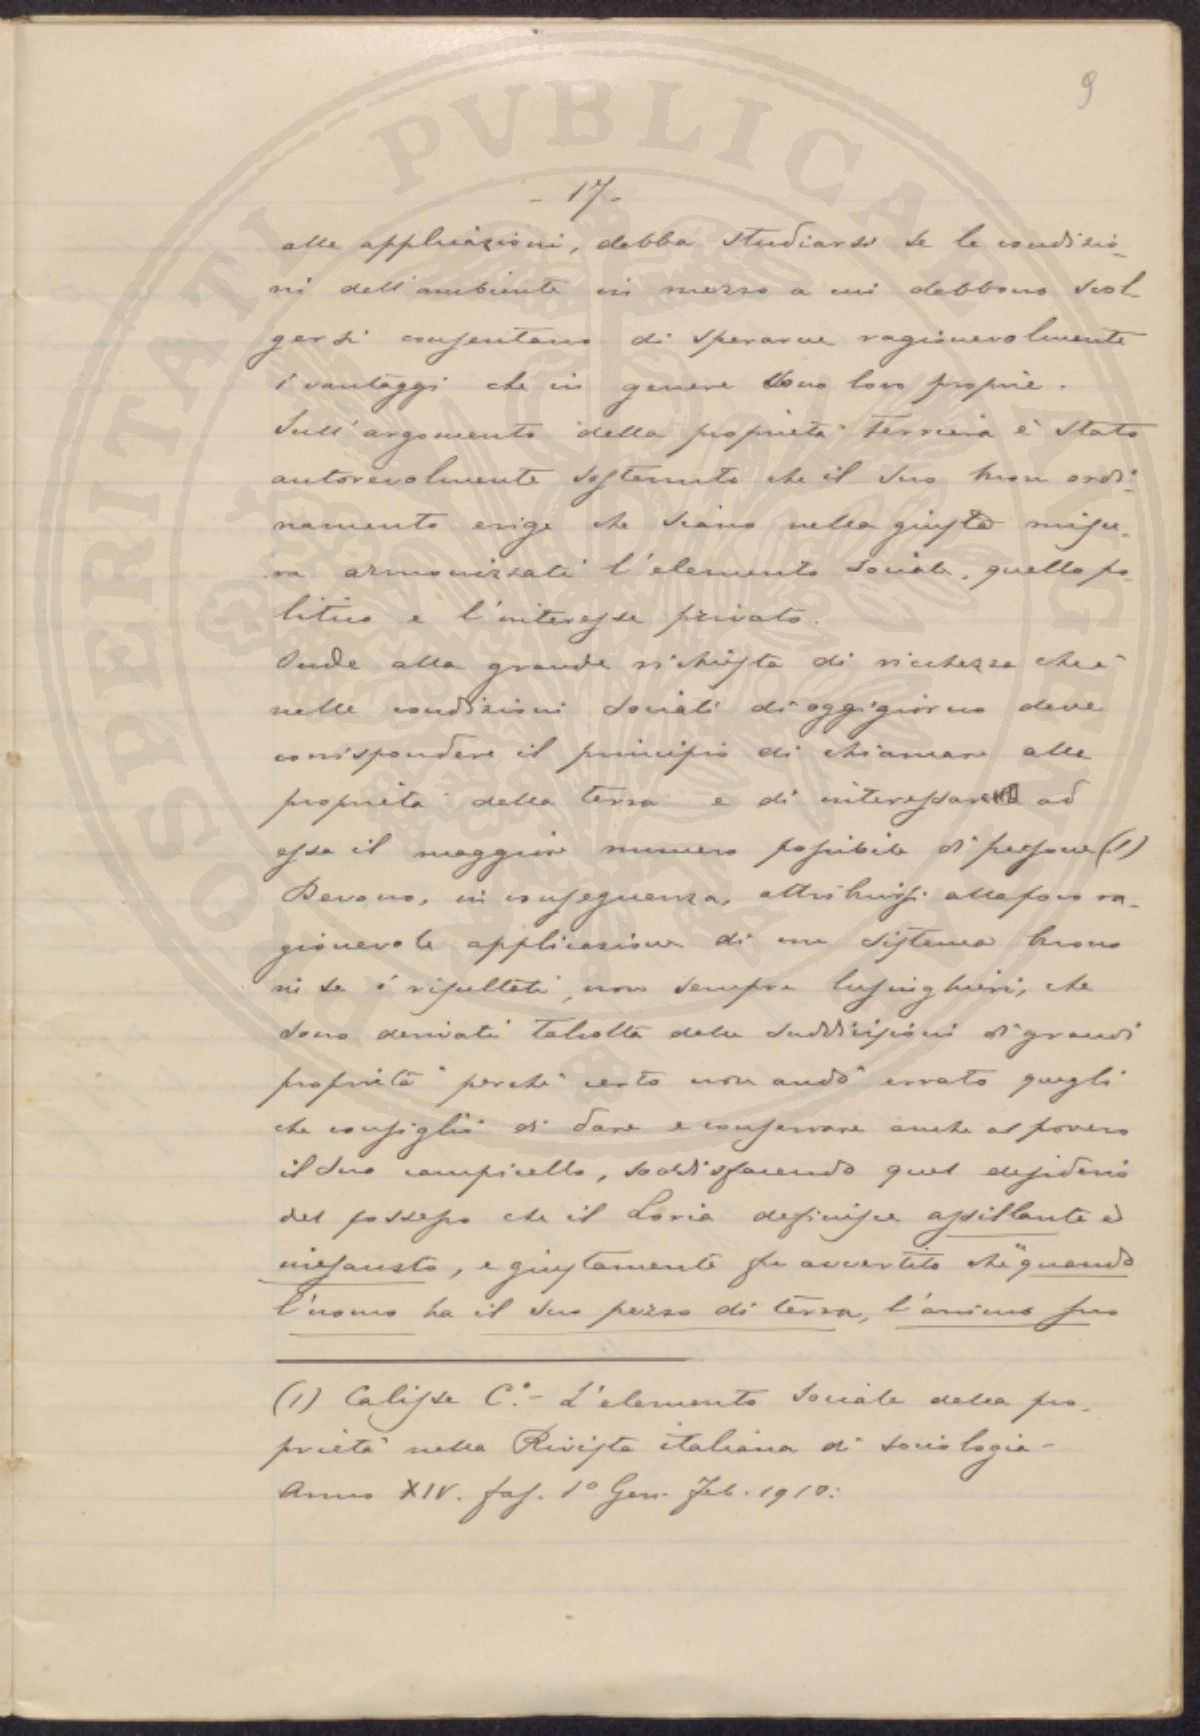 9
- 17 -
alle applicazioni, debba studiarsi se le condizio-
ni dell'ambiente in mezzo a cui debbono svol-
gersi consentano di sperarne ragionevolmente
i vantaggi che in genere sono loro proprie.
Sull'argomento della proprietà terriera è stato
autorevolmente sostenuto che il suo buon ordi-
namento esige che siano nella giusta misu-
ra armonizzati l'elemento sociale, quello po-
litico e l'interesse privato.
Onde alla grande richiesta di ricchezza che è
nelle condizioni sociali di oggigiorno deve
corrispondere il principio di chiamare alla
proprietà della terra e di interessare ad
essa il maggior numero possibile di persone (1)
Devono, in conseguenza, attribuirsi alla poco ra-
gionevole applicazione di un sistema buono
in se i risultati, non sempre lusinghieri, che
sono derivati talvolta dalle suddivisioni di grandi
proprietà perchè certo non andò errato quegli
che consigliò di dare e conservare anche al povero
il suo campicello, soddisfacendo quel desiderio
del possesso che il Loria definisce assillante ed
inesausto, e giustamente fu avvertito che "quando
l'uomo ha il suo pezzo di terra, l'animo suo
(1) Calisse C.° - L'elemento sociale della pro-
prietà nella Rivista italiana di sociologia -
Anno XIV. fas. 1° Gen. Feb. 1910.
PROSPERITATI PVBLICAE AVGENDAE